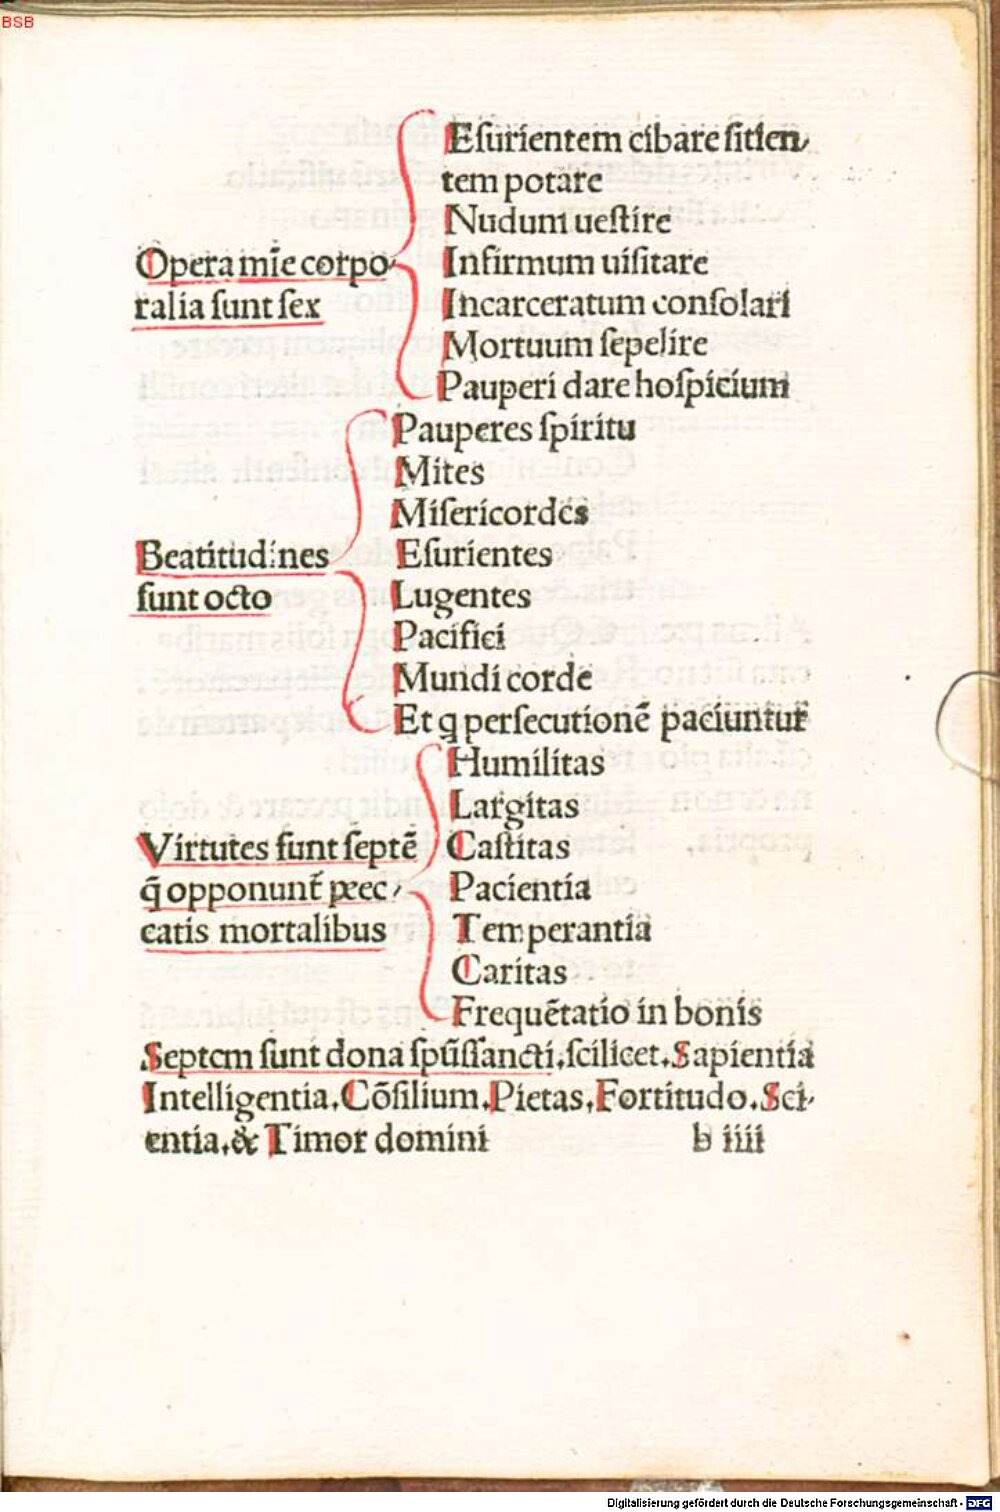 BSB
Eſurientem cibare ſitien-
tem potare
Nudum ueſtire
Opera mīe corpo-
Infirmum uiſitare
ralia ſunt ſex
Incarceratum conſolari
Mortuum ſepelire
Pauperi dare hoſpicium
Pauperes ſpiritu
Mites
Miſericordes
Beatitudines
Eſurientes
ſunt octo
Lugentes
Pacifici
Mundi corde
Et q perſecutionē paciuntur
Humilitas
Largitas
Virtutes ſunt ſeptē
Caſtitas
q̄ opponunt̄ pec-
Pacientia
catis mortalibus
Temperantia
Caritas
Frequētatio in bonis
Septem ſunt dona ſpūſſancti, ſcilicet. Sapientia
Intelligentia. Cōſilium. Pietas, Fortitudo. Sci-
entia. & Timor domini
b iiii
Digitalisierung gefördert durch die Deutsche Forschungsgemeinschaft - DFG